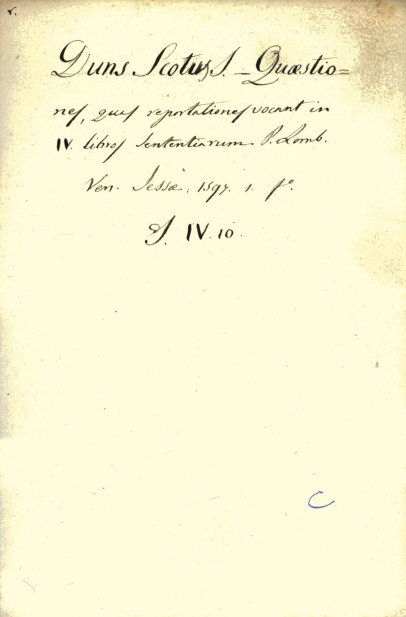 v.
Duns Scotus J. – Quæstio=
nes, quas reportationes vocant in
IV. libros Sententiarum P. Lomb.
Ven. Jessæ, 1597. 1. fº.
J. IV. 10.
C